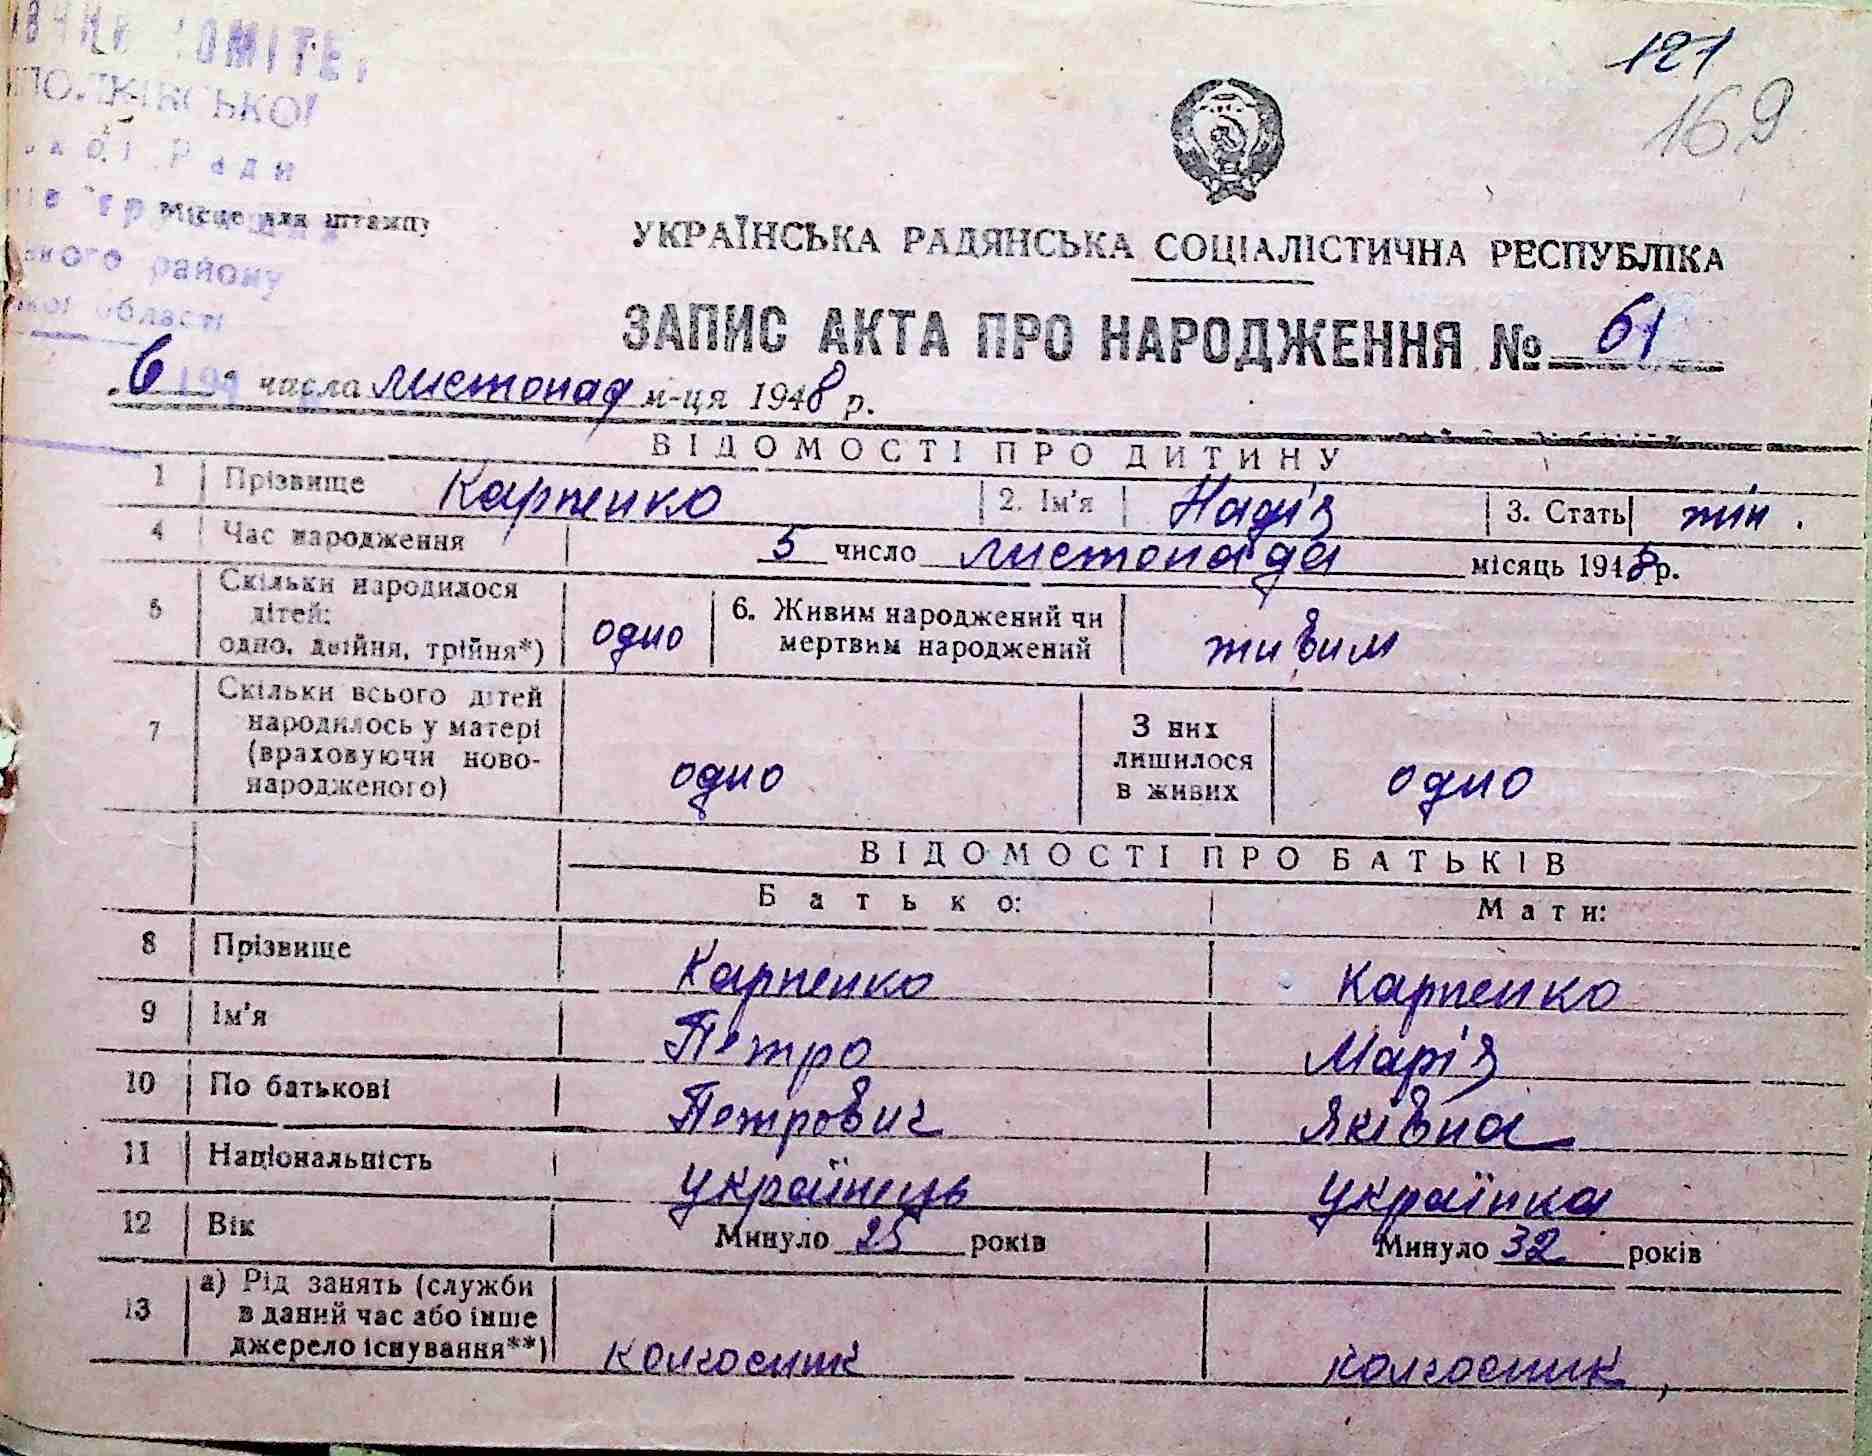 121
169
КОМІТЕТ
Ради
Місце для штампу
району
області
УКРАЇНСЬКА РАДЯНСЬКА СОЦІАЛІСТИЧНА РЕСПУБЛІКА
ЗАПИС АКТА ПРО НАРОДЖЕННЯ № 61
„6“ числа листопад м-ця 1948 р.
ВІДОМОСТІ ПРО ДИТИНУ
1 Прізвище Карпенко 2. Ім'я Надія 3. Стать жін.
4 Час народження 5 число листопада місяць 1948 р.
5 Скільки народилося дітей: одно, двійня, трійня*) одно 6. Живим народжений чи мертвим народжений живим
7 Скільки всього дітей народилось у матері (враховуючи ново-народженого) одно З них лишилося в живих одно
ВІДОМОСТІ ПРО БАТЬКІВ
Батько: Мати:
8 Прізвище Карпенко Карпенко
9 Ім'я Петро Марія
10 По батькові Петрович Яківна
11 Національність українець українка
12 Вік Минуло 25 років Минуло 32 років
13 а) Рід занять (служби в даний час або інше джерело існування**) колгосник колгосник,